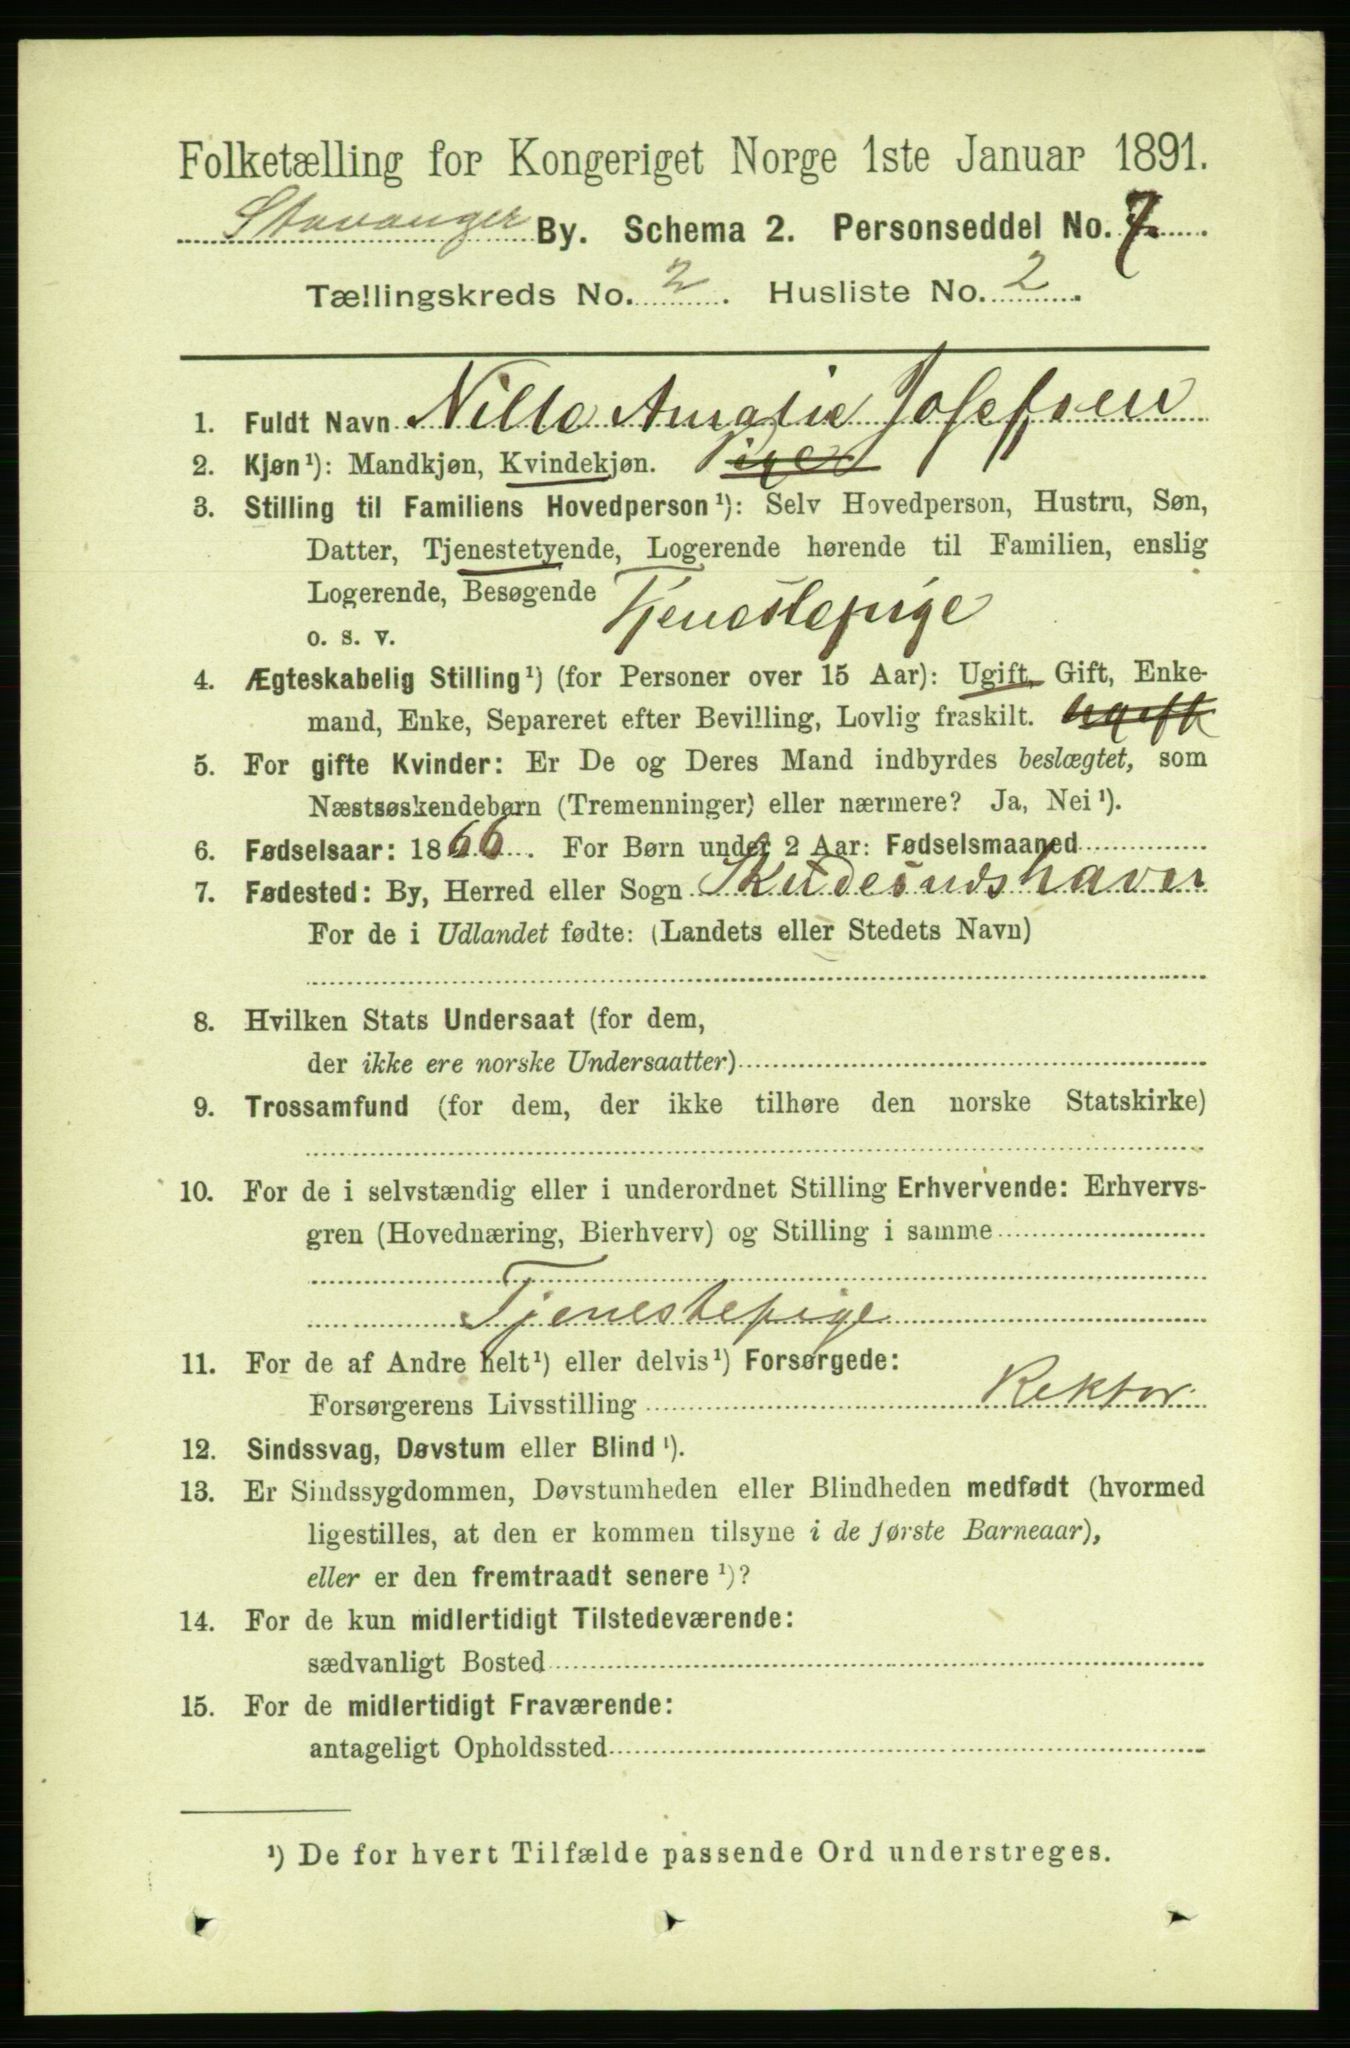 Folketælling for Kongeriget Norge 1ste Januar 1891.
Stavanger By. Schema 2. Personseddel No. 7
Tællingskreds No. 2. Husliste No. 2.
1. Fuldt Navn Nille Amalie Josefsen
2. Kjøn¹): Mandkjøn, Kvindekjøn. Pige
3. Stilling til Familiens Hovedperson¹): Selv Hovedperson, Hustru, Søn,
Datter, Tjenestetyende, Logerende hørende til Familien, enslig
Logerende, Besøgende Tjenestepige
o. s. v.
4. Ægteskabelig Stilling¹) (for Personer over 15 Aar): Ugift, Gift, Enke-
mand, Enke, Separeret efter Bevilling, Lovlig fraskilt. Ugift
5. For gifte Kvinder: Er De og Deres Mand indbyrdes beslægtet, som
Næstsøskendebørn (Tremenninger) eller nærmere? Ja, Nei¹).
6. Fødselsaar: 1866. For Børn under 2 Aar: Fødselsmaaned
7. Fødested: By, Herred eller Sogn Skudesnæshavn
For de i Udlandet fødte: (Landets eller Stedets Navn)
8. Hvilken Stats Undersaat (for dem,
der ikke ere norske Undersaatter)
9. Trossamfund (for dem, der ikke tilhøre den norske Statskirke)
10. For de i selvstændig eller i underordnet Stilling Erhvervende: Erhvervs-
gren (Hovednæring, Bierhverv) og Stilling i samme
Tjenestepige
11. For de af Andre helt¹) eller delvis¹) Forsørgede:
Forsørgerens Livsstilling Rektor.
12. Sindssvag, Døvstum eller Blind¹).
13. Er Sindssygdommen, Døvstumheden eller Blindheden medfødt (hvormed
ligestilles, at den er kommen tilsyne i de første Barneaar),
eller er den fremtraadt senere¹)?
14. For de kun midlertidigt Tilstedeværende:
sædvanligt Bosted
15. For de midlertidigt Fraværende:
antageligt Opholdssted
¹) De for hvert Tilfælde passende Ord understreges.